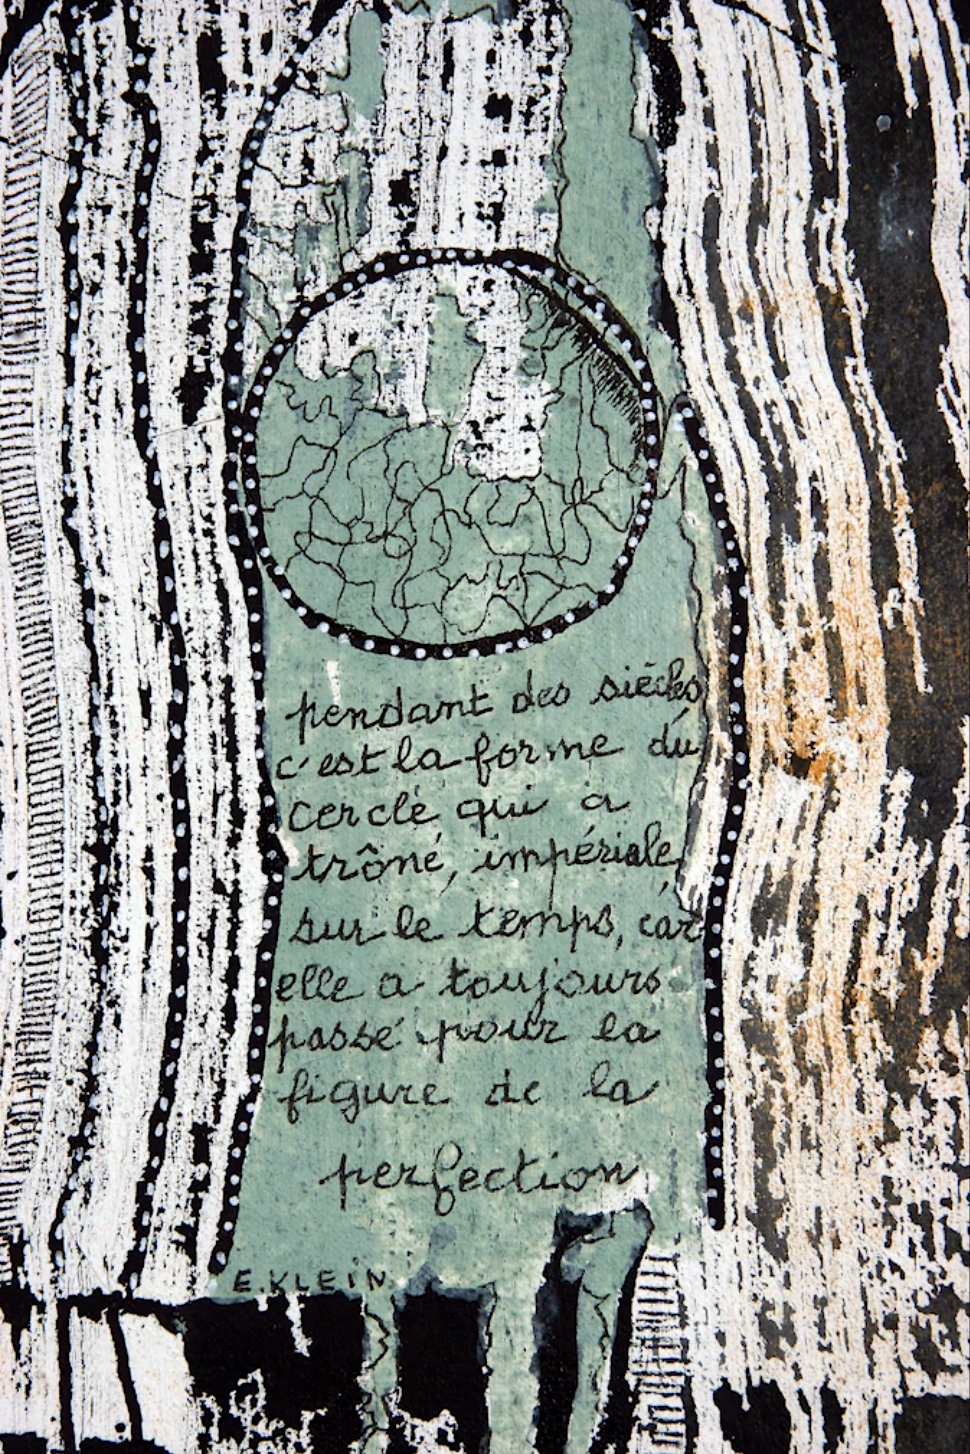 pendant des siècles
c'est la forme du
cercle qui a
trôné, impériale,
sur le temps, car
elle a toujours
passé pour la
figure de la
perfection
E. KLEIN